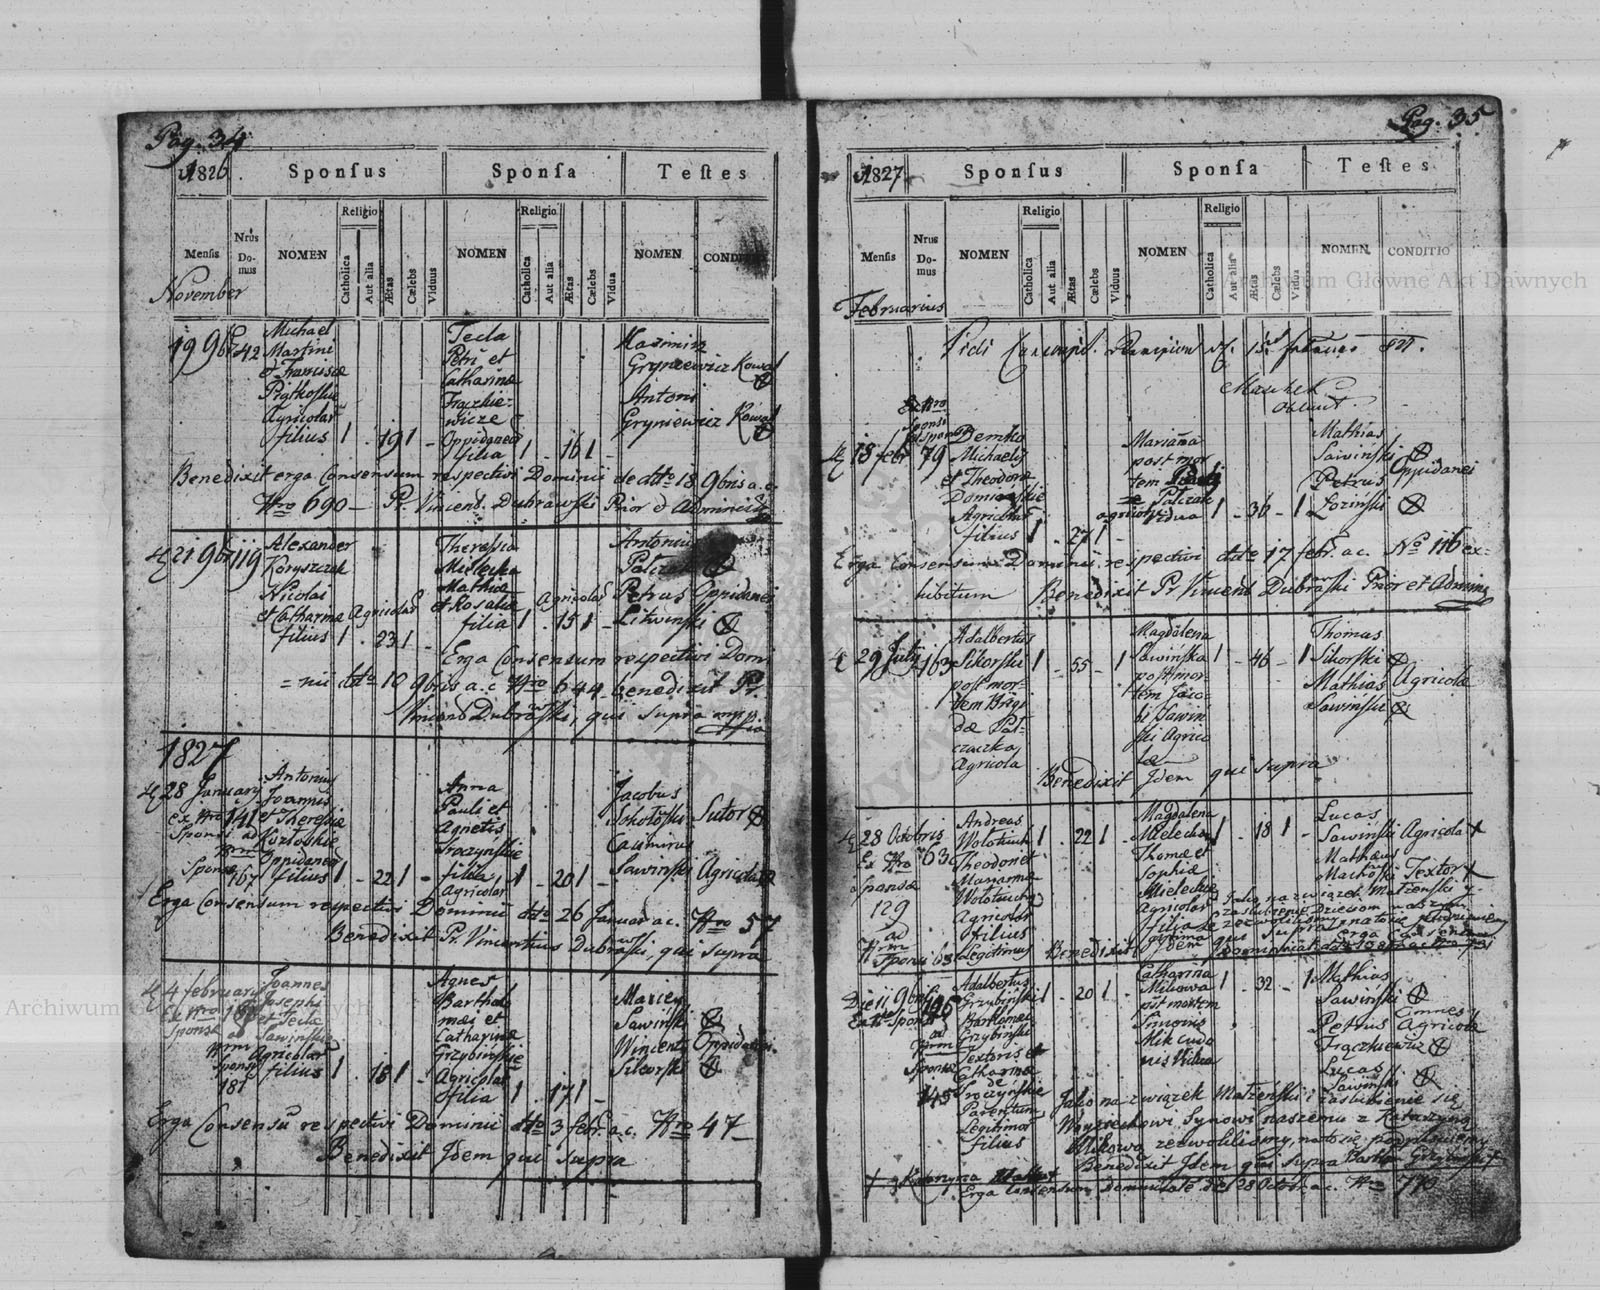 Pag. 34
1826
Sponſus
Sponſa
Teſtes
Menſis
Nrus Domus
NOMEN
Religio
Catholica
Aut alia
Ætas
Cælebs
Viduus
NOMEN
Religio
Catholica
Aut alia
Ætas
Cælebs
Vidua
NOMEN
CONDITIO
November
19 9br 42
Michael
Martini
et Franciscæ
Agricolar
filius 1 . 19 1 -
Tecla
Petri et
Catharinæ
Frączkie-
wicze
Oppidaneor
filia 1 - 16 1 -
Kazimirz
Gryniewicz Kowal
Antoni
Gryniewicz Kowal
Benedixit erga Consensum respectivi Dominii de dtto 18 9bris a.c.
Nro 690 - Pr. Vincent. Dubrawski Prior et
21 9br 119
Alexander
Koryszczak
Nicolai
et Catharina Agricolar
filius 1 . 23 1 -
Theressia
Mielecka
Mathiæ
et Rosaliæ Agricolar
filia 1 . 15 1 -
Antonius
Palczak
Petrus Oppidanei
Litwinski
Erga Consensum respectivi Domi
= nii dtto 10 9bris a.c. Nro 644 benedixit Pr.
Vincent Dubrawski, qui supra mpp
1827
28 January 141
Ex Nro
Sponsi ad
Nrm
Sponsæ 167
Antonius
Joannis
et Theresiæ
Kozłoskie
Oppidaneor
filius 1 - 22 1
Anna
Pauli et
Agnetis
Froczynskie
filia 1 - 20 1 -
Agricolar
Jacobus
Sokołoski Sutor
Casimirus
Sawinski Agricola
Erga Consensum respectivi Dominii dtto 26 Januar a.c. Nro 57
Benedixit Pr. Vincentius Dubrawski, qui supra
4 february
Ex Nro
Sponsæ ad
Nrm
Sponsi
181
Joannes
Josephi
et Teclæ
Sawinskie
Agricolar
filius 1 . 18 1 -
Agnes
Bartholo
mæi et
Catharinæ
Grzybinskie
Agricolar
filia 1 . 17 1 -
Maciey
Sawinski
Wincenti Oppidanei
Sikorski
Erga Consensu respectivi Dominii dtto 3 febr. a.c. Nro 47 -
Benedixit Idem qui supra
Pag. 35
1827
Sponſus
Sponſa
Teſtes
Menſis
Nrus Domus
NOMEN
Religio
Catholica
Aut alia
Ætas
Cælebs
Viduus
NOMEN
Religio
Catholica
Aut alia
Ætas
Cælebs
Vidua
NOMEN
CONDITIO
Februarius
Vidi
Ex Nro
Sponsi
18 febr 79
Demko
Michaelis
et Theodoræ
Agricolar
filius 1 . 27 1 -
Marianna
post mor
tem
Palczak
agricolæ Vidua 1 - 36 - 1
Mathias
Sawinski
Oppidanei
Petrus
Łozinski
Erga Consensum Dominii respectivi dtto 17 febr. a.c. No 116 ex-
hibitum Benedixit Pr. Vincent Dubrawski Prior et Admins
29 July 163
Adalbertus
Sikorski 1 - 55 - 1
post mor-
tem Brigi
dæ Pal-
czaczka
Agricola
Magdalena
Sawinska 1 - 46 - 1
post mor-
tem Jaco
bi Sawin
ski Agrico
læ
Thomas
Sikorski
Mathias Agricolæ
Sawinski
Benedixit Idem qui supra
28 Octobris 63
Ex Nro
Sponsæ
129
ad
Nrm
Sponsi 63
Andreas
Wołotiuch 1 . 22 1
Theodori et
Mariannæ
Wołotiuch
Agricolar
filius
Legitimus
Magdalena
Mielecka 1 - 18 1 -
Thomæ et
Sophiæ
Mieleckie
Agricolar
filia Le
gittima
Lucas
Sawinski Agricola +
Mathæus
Machoski Textor +
Jako na związek Małżenski y
zaslubienie Dzieciom naszym
zezwolilismy, na to się podpisuiemy
Benedixit Idem qui supra erga Consensum
Die 11 9bris 126
Ex Nro Sponsi
ad
Nrm
Sponsæ
145
Adalbertus
Grzybinski 1 - 20 1
Bartholomæi
Grzybinski
Textoris et
Catharinæ
de
Froczynskie
Parentum
Legitimor
filius
Catharina
Mikowa 1 - 32 - 1
post mortem
Simonis
Mik cuio
vis Vidua
Mathias
Sawinski
Omnes
Petrus Agricolæ
Frączkiewicz
Lucas
Sawinski
Jako na związek Małżenski i zaslubienie się
Woyciechowi Synowi naszemu z Katarzyną
Mikową zezwolilismy, na to się podpisuiemy
Benedixit Idem qui supra Bartłom Grzybinski +
+ Katarzyna
Erga Consensum Dominii de dtto 28 Octobr. a.c. Nro 790
Archiwum Główne Akt Dawnych
Archiwum Główne Akt Dawnych